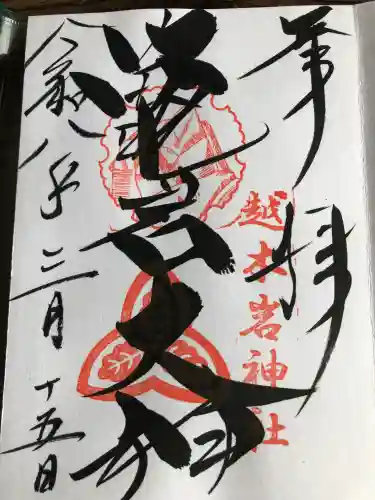 奉拝
越木岩神社
甑岩大神
令和八年三月十五日